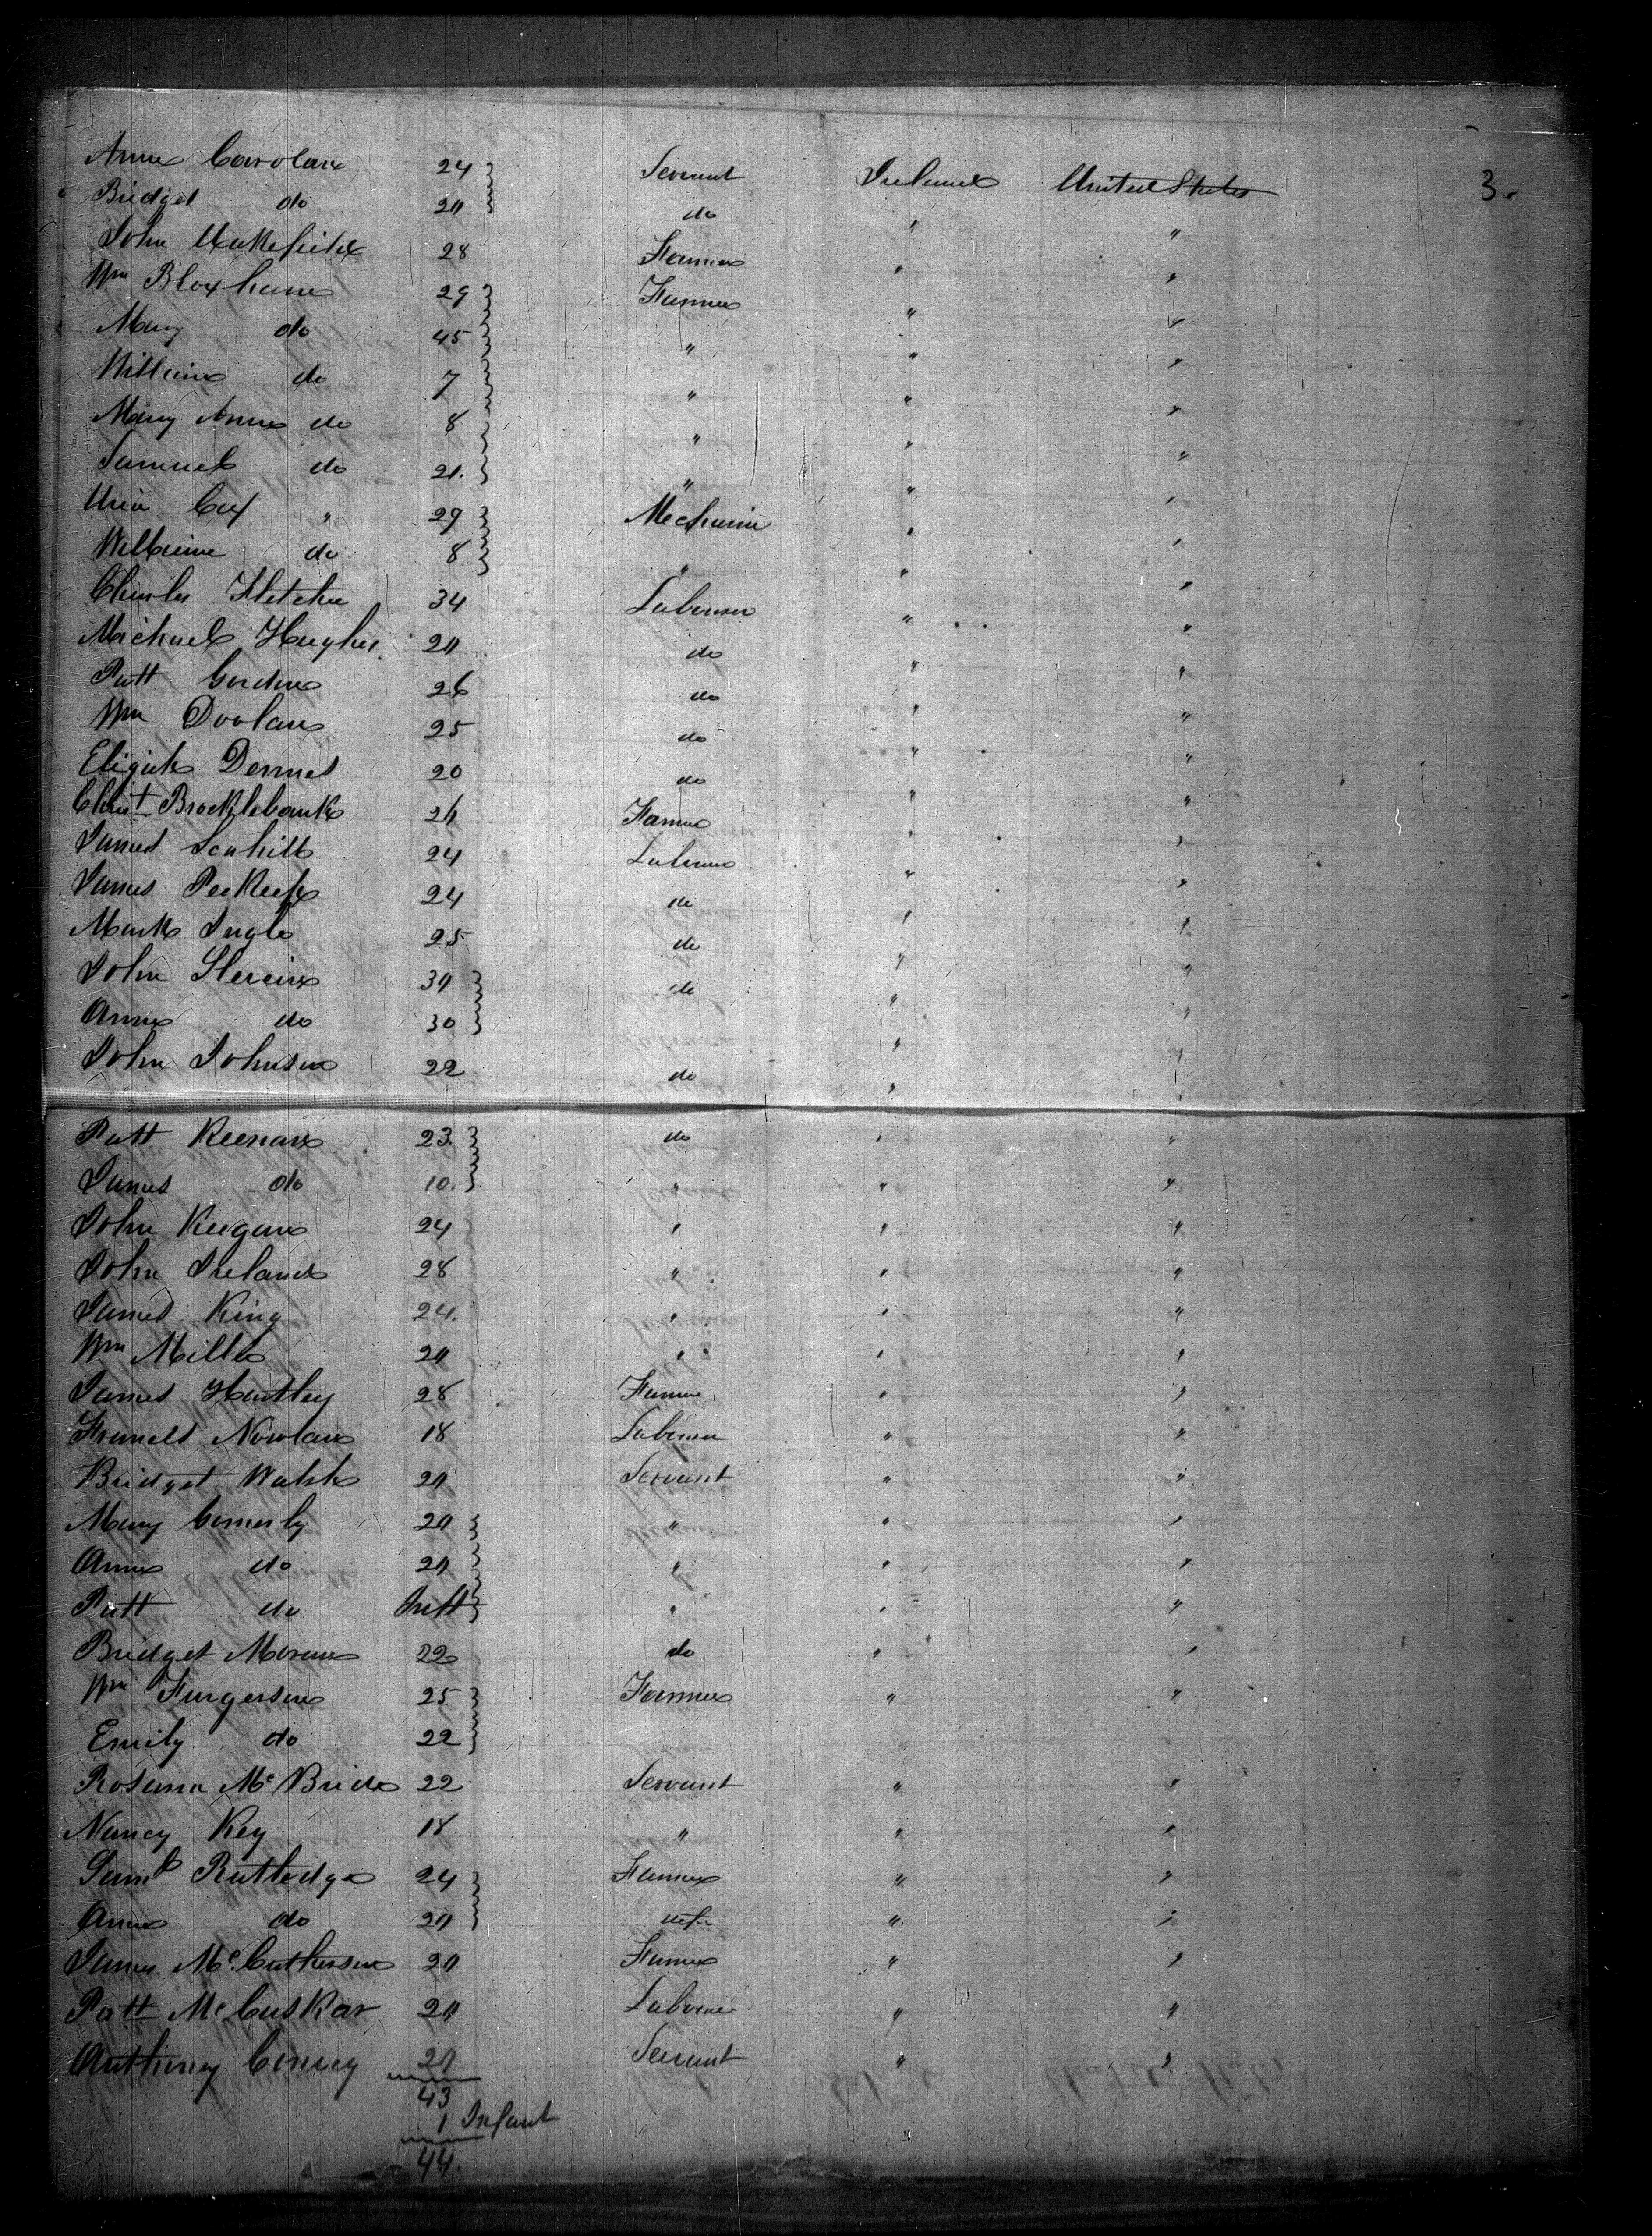 Anne Carolan 24 Servant Ireland United States 3.
Bridget do 20 do " "
John Wakefield 28 Farmer " "
Wm Bloxham 29 Farmer " "
Mary do 45 " " "
William do 7 " " "
Mary Anne do 8 " " "
Samuel do 21. " " "
" 29 Mechanic " "
William do 8 " " "
Charles Fletcher 34 Labourer " "
Michael Hughes 20 do " "
Patt Gordon 26 do " "
Wm Doolan 25 do " "
Dennis 20 do " "
Christ Brocklebank Farmer " "
James Scahill 24 Labourer " "
James 24 do " "
Mark Ingle 25 do " "
John 30 do " "
Anne do 30 " "
John Johnson 22 do " "
Patt Keenan 23. do " "
James do 10. " " "
John Keegan 24 " " "
John Ireland 28 " " "
James King 24. " " "
Wm Miller 20 " " "
James Huntley 28 Farmer " "
Francis Nowlan 18 Labourer " "
Bridget Walsh 20 Servant " "
Mary Connerly 20 " " "
Anne do 20 " " "
Patt do Inft " " "
Bridget Moran 22 do " "
Wm Furgerson 25 Farmer " "
Emily do 22
Rosanna McBride 22 Servant " "
Nancy Key 18 " " "
Saml Rutledge 24 Farmer " "
Anne do 20 wife " "
James McCutherson 20 Farmer " "
Patt McCuskar 20 Labourer " "
Anthony 20 Servant " "
43
1 Infant
44.